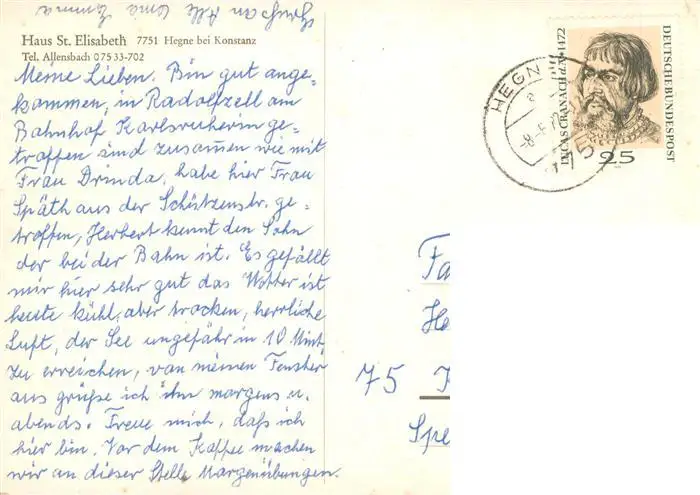 Grüße an Alle Oma Emma
Haus St. Elisabeth 7751 Hegne bei Konstanz
Tel. Allensbach 07533-702
Meine Lieben. Bin gut ange-
kommen, in Radolfzell am
Bahnhof Karlsruherin ge-
troffen sind zusammen wie mit
Frau Drinda, habe hier Frau
Späth aus der Schützenstr. ge-
troffen, Herbert kennt den Sohn
der bei der Bahn ist. Es gefällt
mir hier sehr gut das Wetter ist
heute kühl, aber trocken, herrliche
Luft, der See ungefähr in 10 Minut.
zu erreichen, von meinem Fenster
aus grüße ich ihn morgens u.
abends. Freue mich, daß ich
hier bin. Vor dem Kaffee machen
wir an dieser Stelle Morgenübungen.
HEGNE
LUCAS CRANACH d.Ä. 1472
DEUTSCHE BUNDESPOST
25
Fa
He
75 K
Spe